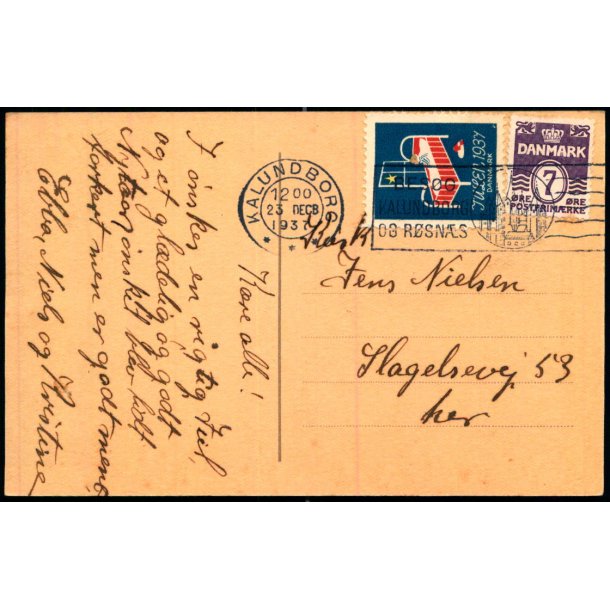 Kære alle!
I ønskes en rigtig Jul,
og et glædelig og godt
Nytaar, ønsket blev
forkort men er godt ment
Ebba, Niels og Kristine
KALUNDBORG
12 00
23 DECB
1937
BESØG
KALUNDBORG
OG RØSNÆS
JULEN 1937
DANMARK
DANMARK
7
ØRE ØRE
POSTFRIMÆRKE
Jens Nielsen
Slagelsevej 53
her